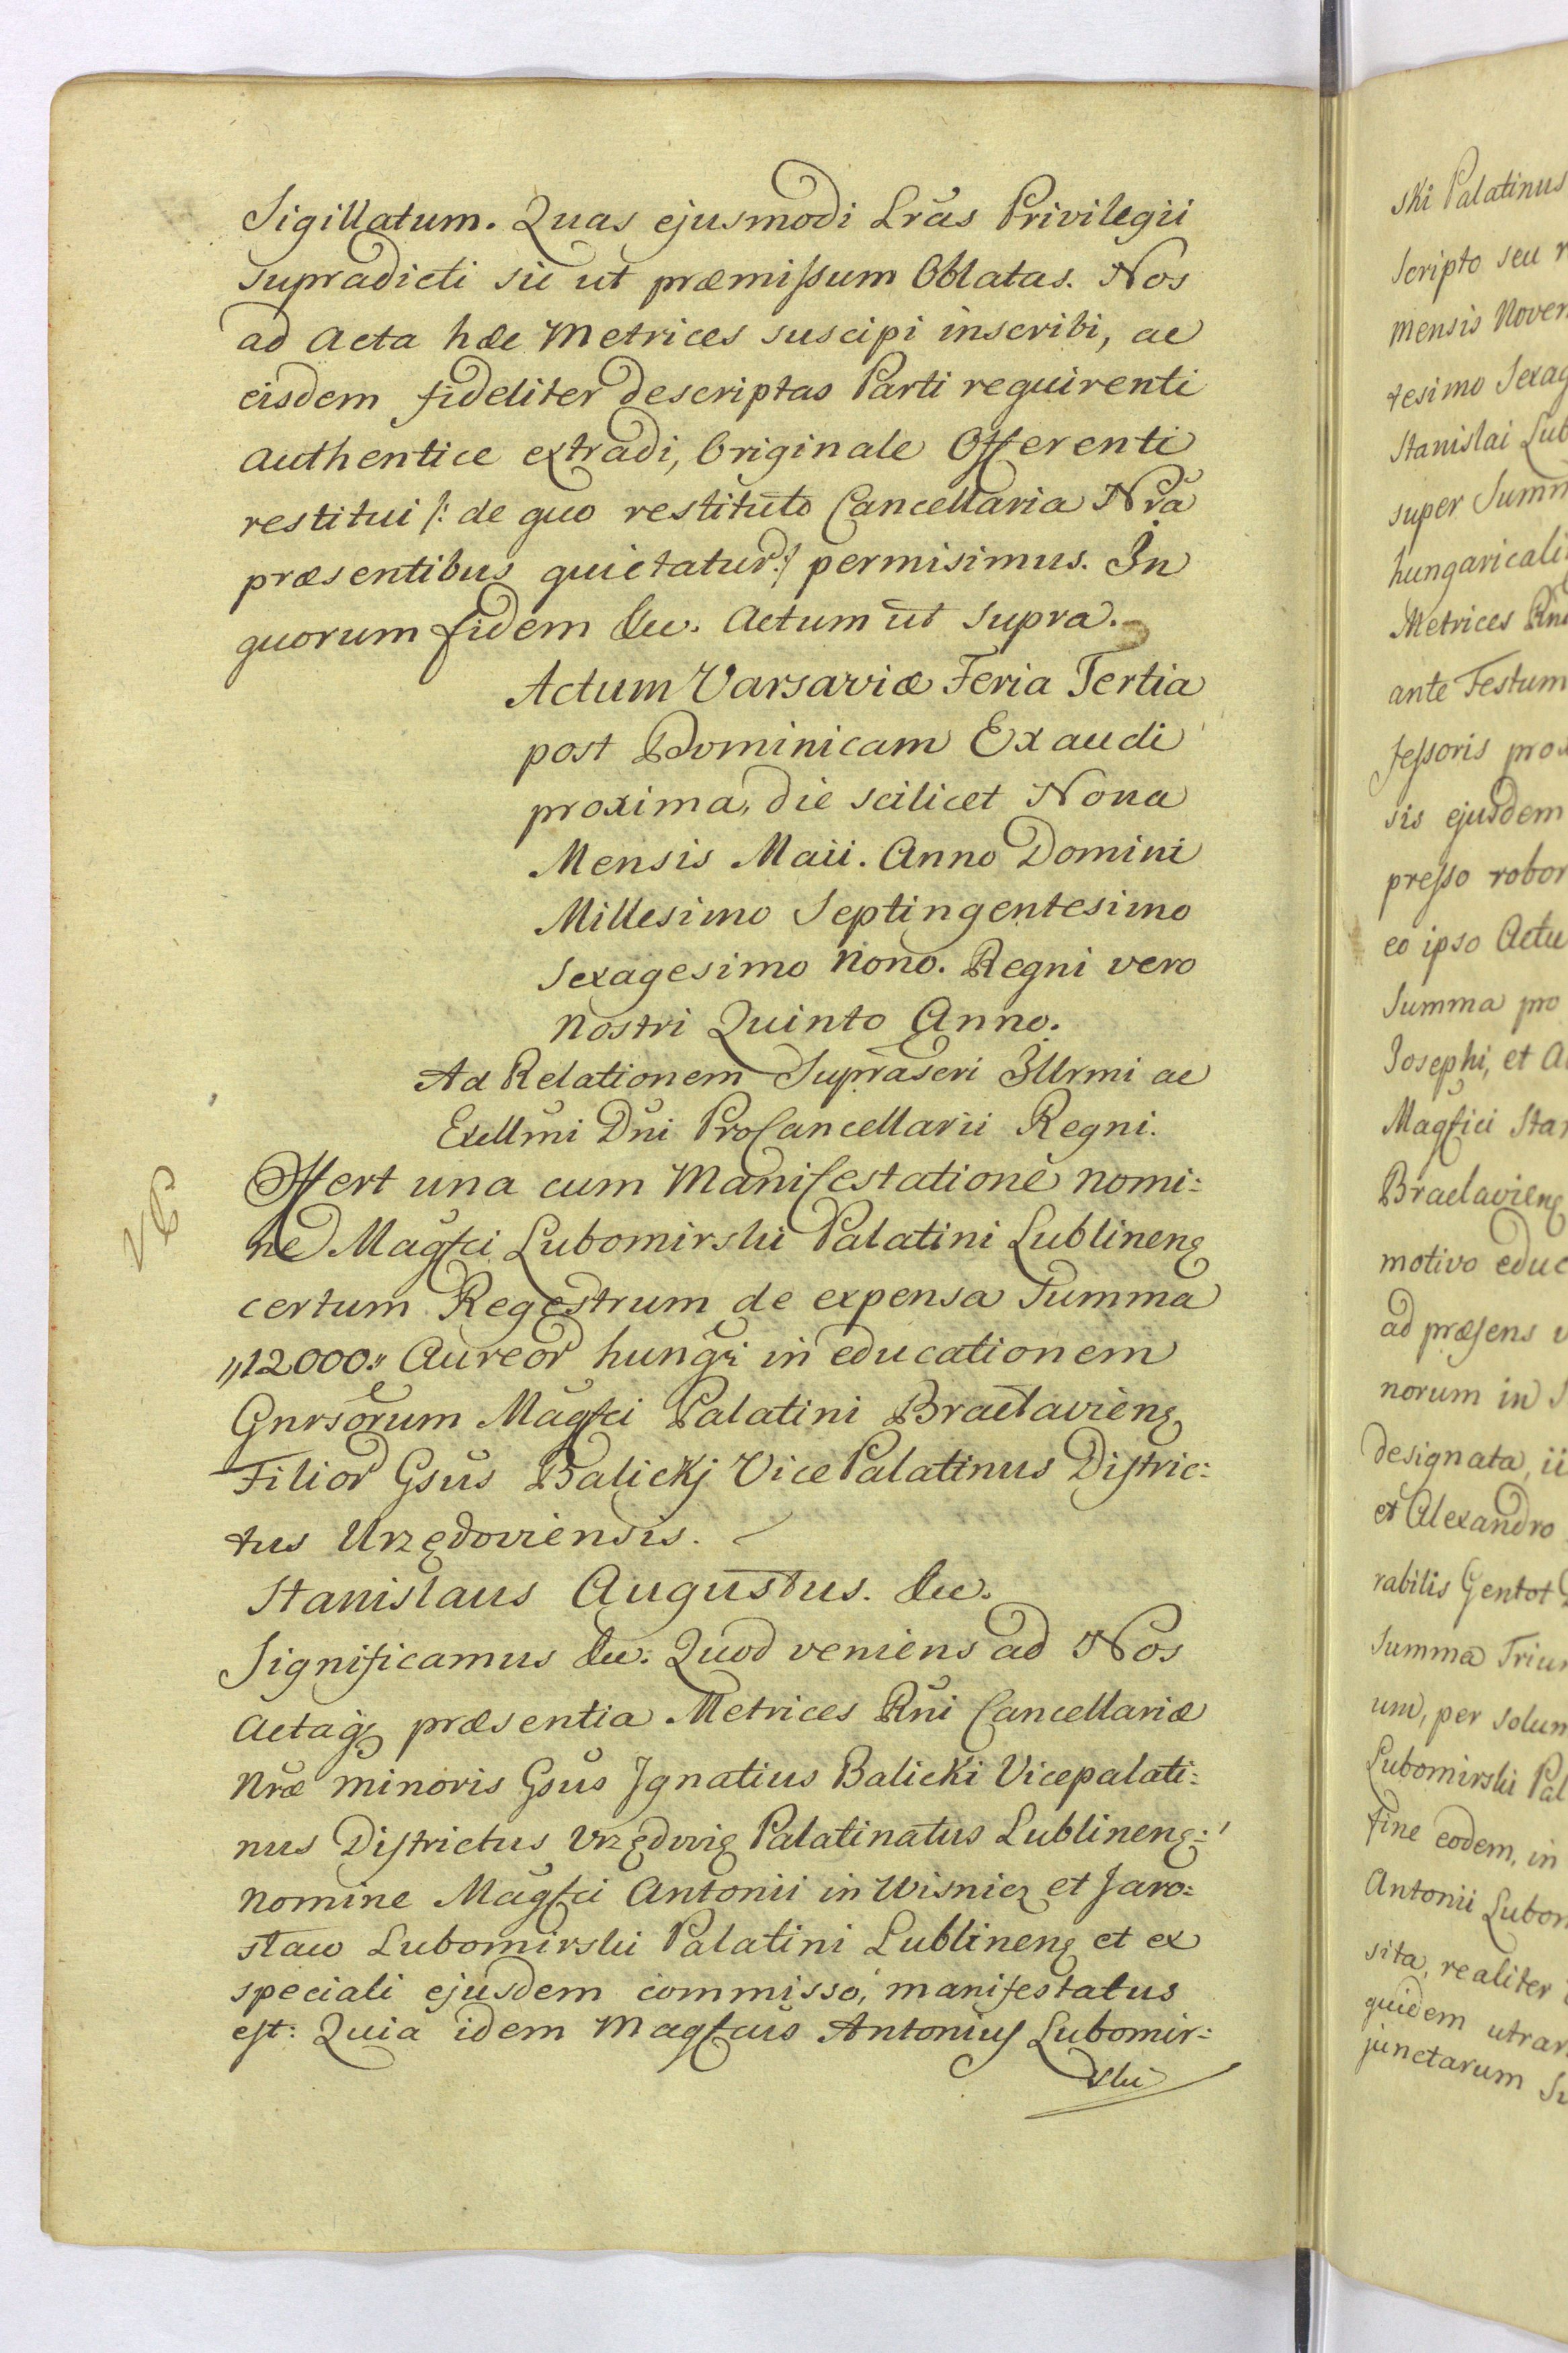 Sigillatum. Quas ejusmodi Lrãs Privilegii
supradicti sic ut præmissum Oblatas. Nos
ad Acta hæc Metrices suscipi inscribi, ac
eisdem fideliter descriptas Parti requirenti
authentice extradi, Originale Offerenti
restitui /: de quo restituto Cancellaria Nrã
præsentibus quietatur :/ permisimus. In
quorum fidem &c. Actum ut supra.
Actum Varsaviæ Feria Tertia
post Dominicam Exaudi
proxima, die scilicet Nona
Mensis Maii. Anno Domini
Millesimo Septingentesimo
Sexagesimo Nono. Regni vero
Nostri Quinto Anno.
Ad Relationem Suprãscri Illrmi ac
Excllmi Dni ProCancellarii Regni.
Offert una cum Manifestatione nomi:
ne Magfci Lubomirski Palatini Lublinenȩ
certum Regestrum de expensa Summa
„12000.„ Aureor hungr̃i in educationem
Gnrsorum Magfci Palatini Braclavienȩ
Filior Gsus Balickj Vice Palatinus Distric:
tus Urzędoviensis.
Stanislaus Augustus. &c.
Significamus &c: Quod veniens ad Nos
Actaqȝ præsentia Metrices Rni Cancellariæ
Nræ minoris Gsus Jgnatius Balicki Vicepalati:
nus Districtus Urzędoviȩ Palatinatus Lublinenȩ:
Nomine Magfci Antonii in Wisnicz et Jaro:
sław Lubomirski Palatini Lublinenȩ et ex
speciali ejusdem commisso, manifestatus
est: Quia idem Magfcus Antonius Lubomir:
ski
ski Palatinus
Scripto seu
mensis Novem
tesimo Sexag
Stanislai Lub
super Summ
hungaricali
Metrices Rn
ante Festum
fessoris prox
sis ejusdem
presso robor
eo ipso Actu
Summa pro
Josephi, et A
Magfici Sta
Braclavienȩ
motivo educ
ad præsens
norum in
designata, ii
et Alexandro
rabilis Gentot
Summa Trium
um, per solum
Lubomirski Pal
fine eodem, in
Antonii Lubom
sita, realiter
quidem utrar
junctarum Su